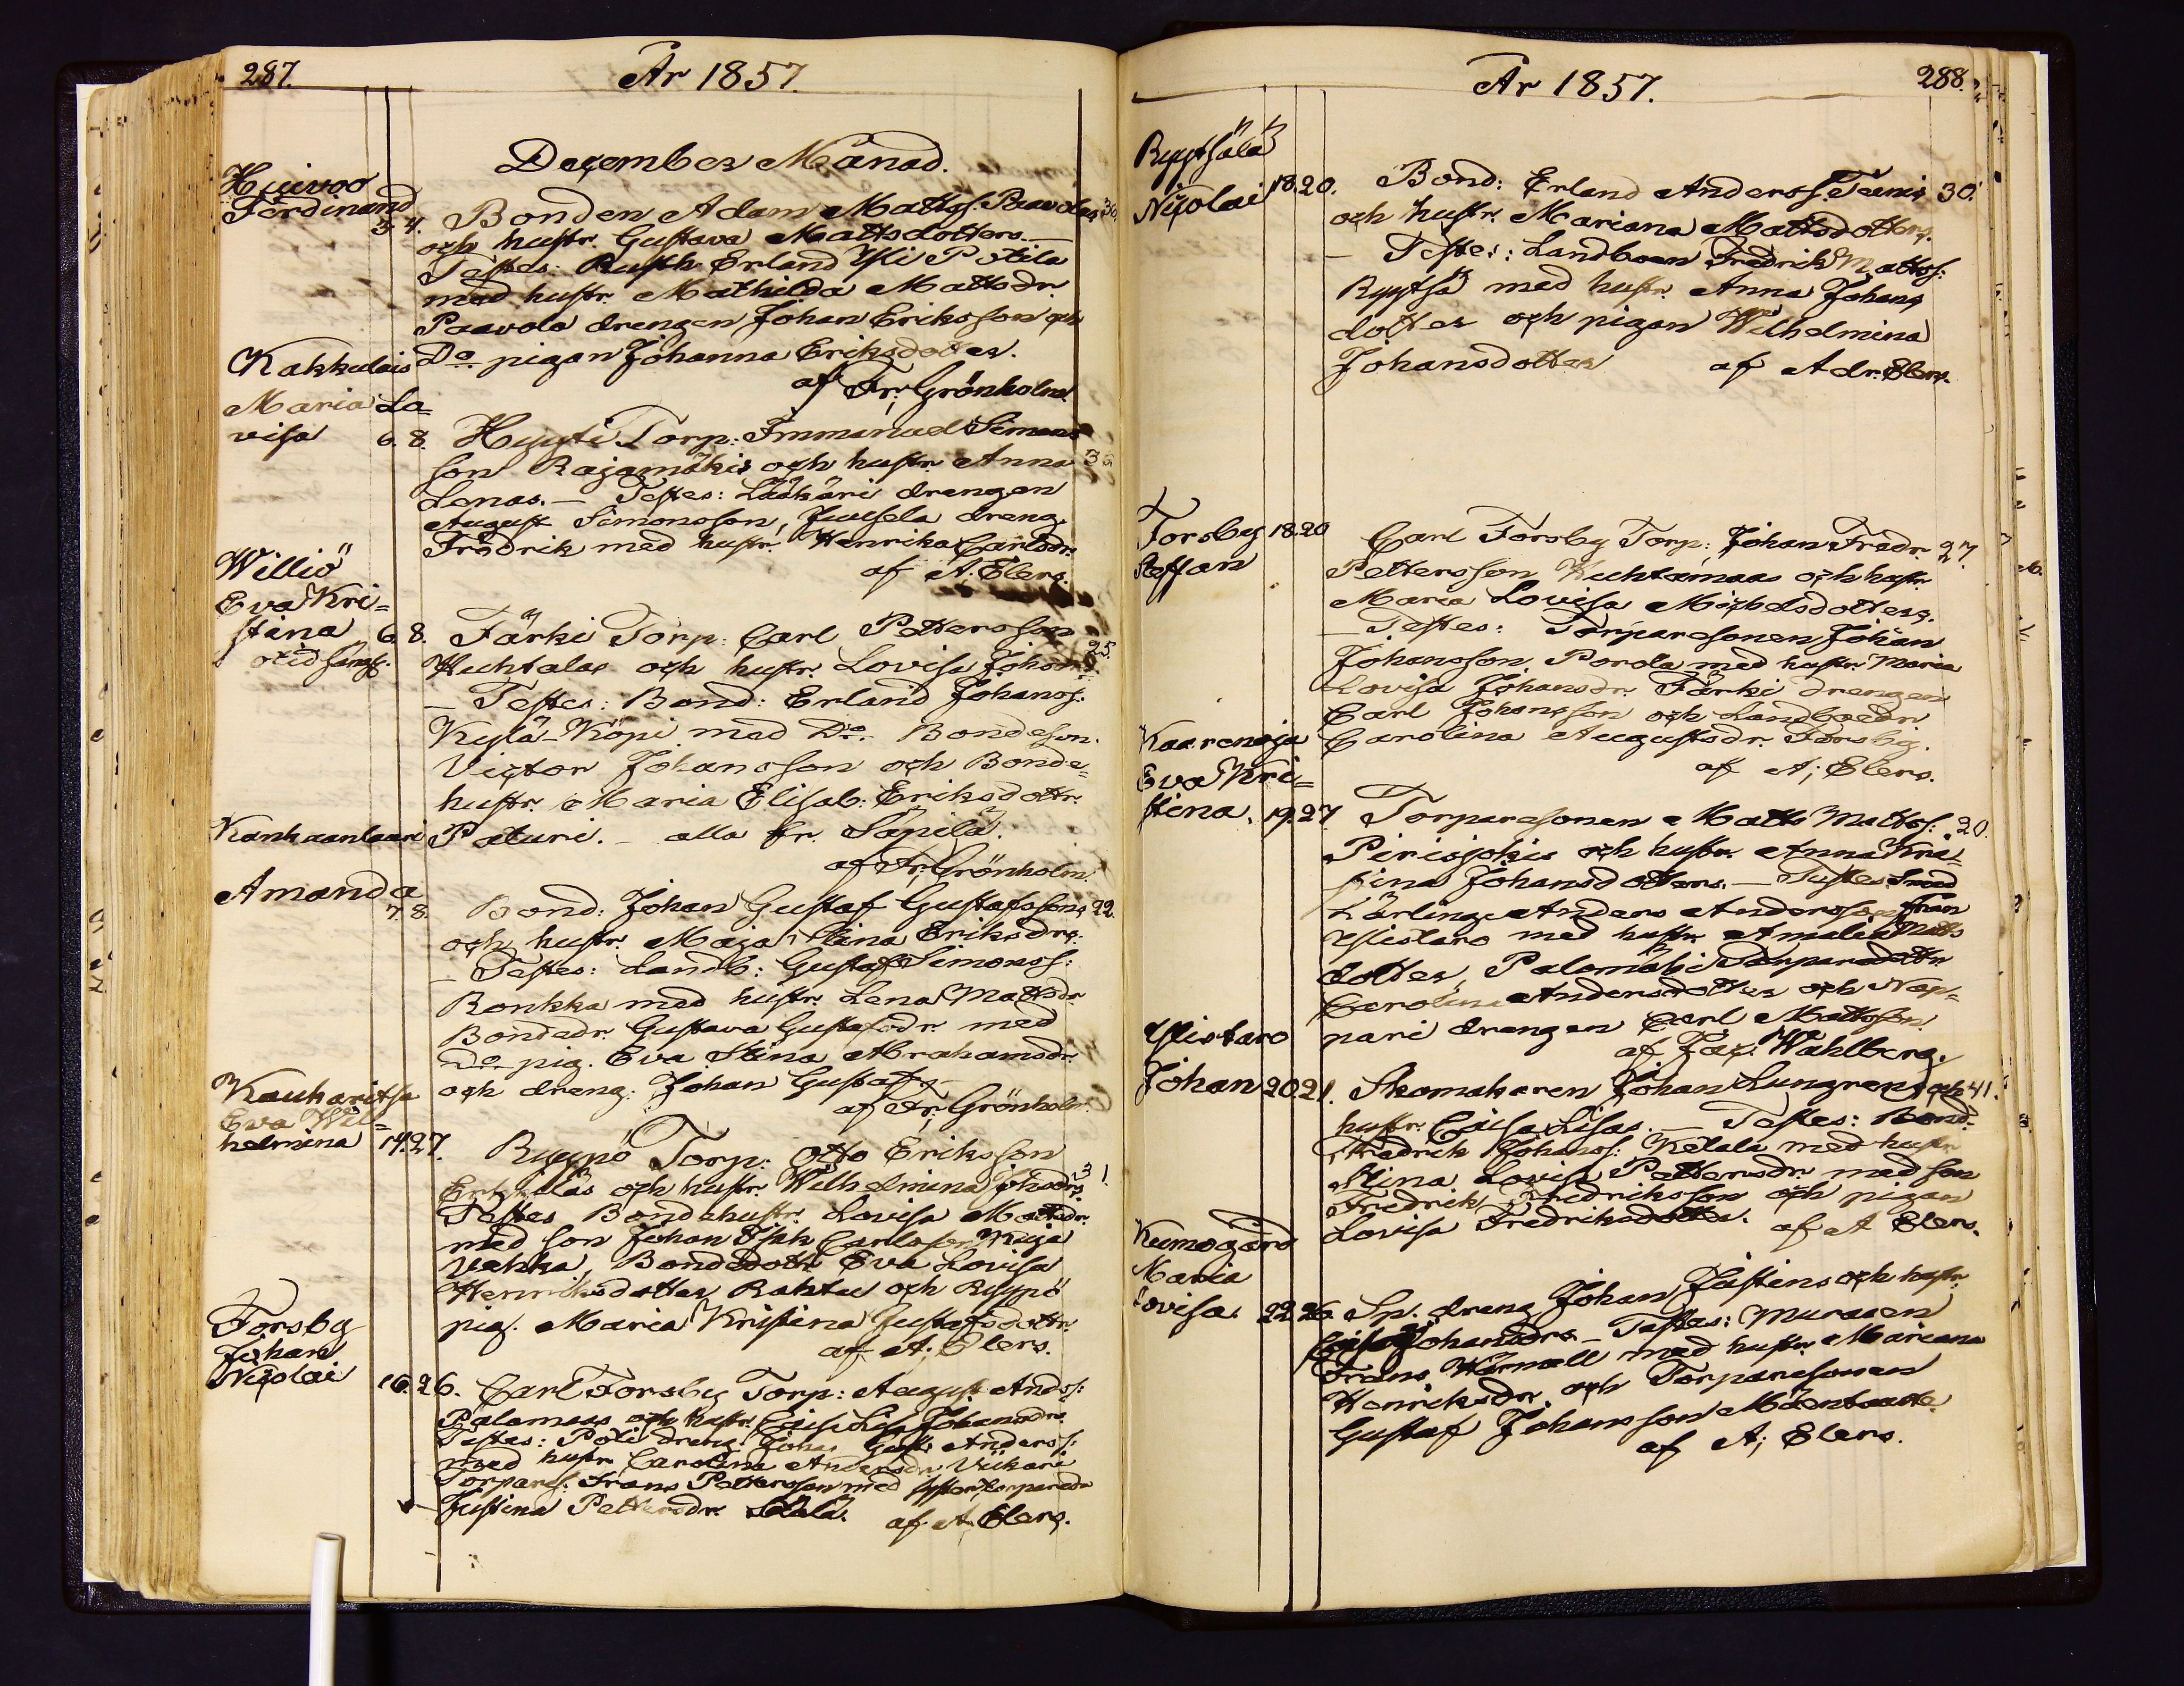 287.
År 1857.
December Månad.
Huivoo
Ferdinand
3. 4. Bonden Adam Mattss. Paavolas 30.
och hustr. Gustava Mattsdotters. —
Testes: Rusth. Erland Yli Potila
med hustr. Mathilda Mattsdr.
Paavola drengen Johan Eriksson och
Do pigan Johanna Eriksdotter.
af Fr; Grönholm.
Kakkulais
Maria Lo=
visa 6. 8. Hyyti Torp: Immanuel Simons
son Rajamäkis och hustr. Anna
Lenas. — Testes: Lääkäri drengen
August Simonsson, Juusela dreng.
Fredrik med hustr. Henrika Carlsdr.
af A. Elers.
Williö
Eva Kri=
stina 6. 8. Färki Torp: Carl Pettersson 25.
Huhtalas och hustr. Lovisa Johansd.
— Testes: Bond: Erland Johanss.
Kylä-Köpi med Do Bondeson.
Victor Johansson och Bonde=
hustr. Maria Elisab: Eriksdottr.
Paturi. — alla fr. Säpilä.
af Fr; Grönholm.
Kanhaanlaari
Amanda
7. 8. Bond: Johan Gustaf Gustafssons 22.
och hustr. Maja Stina Eriksdrs.
— Testes: Landb: Gustaf Simonss:
Ronkka med hustr. Lena Mattsdr
Bondedr. Gustava Gustafsdr. med
Do pig. Eva Stina Abrahamsdr.
och dreng: Johan Gustafs
af Fr; Grönholm.
Kauharitsa
Eva Wil=
helmina 14. 27. Ruppö Torp: Otto Eriksson
Erkkiläs och hustr. Wilhelmina Johsdrs. 31.
Testes Bondehustr. Lovisa Mattsdr.
med son Johan Isak Carlsson Kuja
vahka, Bondedottr Eva Lovisa
Henriksdotter Rahtu och Ruppö
pig. Maria Kristina Gustafsdottr.
af A; Elers.
Forsby
Johan
Nicolai 16. 26. Carl Forsby Torp: August Anderss:
Palomaas och hustr. Caisa Lisa Johansdrs
Testes: Poti dreng. Johan Gust: Anderss:
med hustr. Carolina Andersdr. Viikari
Torpares: Frans Pettersson med syster, torparedr
Justina Pettersdr. Sälä. af A; Elers.
År 1857.
288.
Ryytsälä
Nicolai 18. 20. Bond: Erland Anderss. Teenis 30.
och hustr. Mariana Mattsdotters.
— Testes: Landboen Fredrik Mattss:
Ryytsä med hustr. Anna Johans
dotter och pigan Wilhelmina
Johansdotter af Adr. Elers.
Forsby 18. 20
Steffan
Carl Forsby Torp: Johan Fredr. 27.
Pettersson Huhtamaas och hustr.
Maria Lovisa Michelsdotters.
— Testes: Torparesonen Johan
Johansson Porola med hustr. Maria
Lovisa Johansdr. Färki drengen
Carl Johansson och Landboedr
Carolina Augustsdr. Forsby.
af A; Elers.
Kaarenoja
Eva Kri=
stina. 19. 27. Torparesonen Matts Mattss: 20.
Pirisjokis och hustr. Anna Kri=
stina Johansdotters. — Testes: Smed
Lärling Anders Andersson från
Ylistaro med hustr. Amalia Matts
dotter, Palomäki Torparedottr
Carolina Andersdotter och Nap=
pari drengen Carl Mattsson.
af Jac: Wahlberg.
Ylistaro
Johan 20. 21. Skomakaren Johan Lungrens och 41.
hustr. Caisa Lisas. — Testes: Bond:
Fredrik Johanss: Ketala med hustr
Stina Lovisa Pettersdr. med son
Fredrik Fredriksson och pigan
Lovisa Fredriksdotter. af A Elers.
Kumogård
Maria
Lovisa. 22. 26. Sp. dreng Johan Justins och hustr.
Caisa Johansdrs. — Testes: Muraren
Frans Wärmell med hustr. Mariana
Henriksdr. och Torparesonen
Gustaf Johansson Mäentaate
af A; Elers.